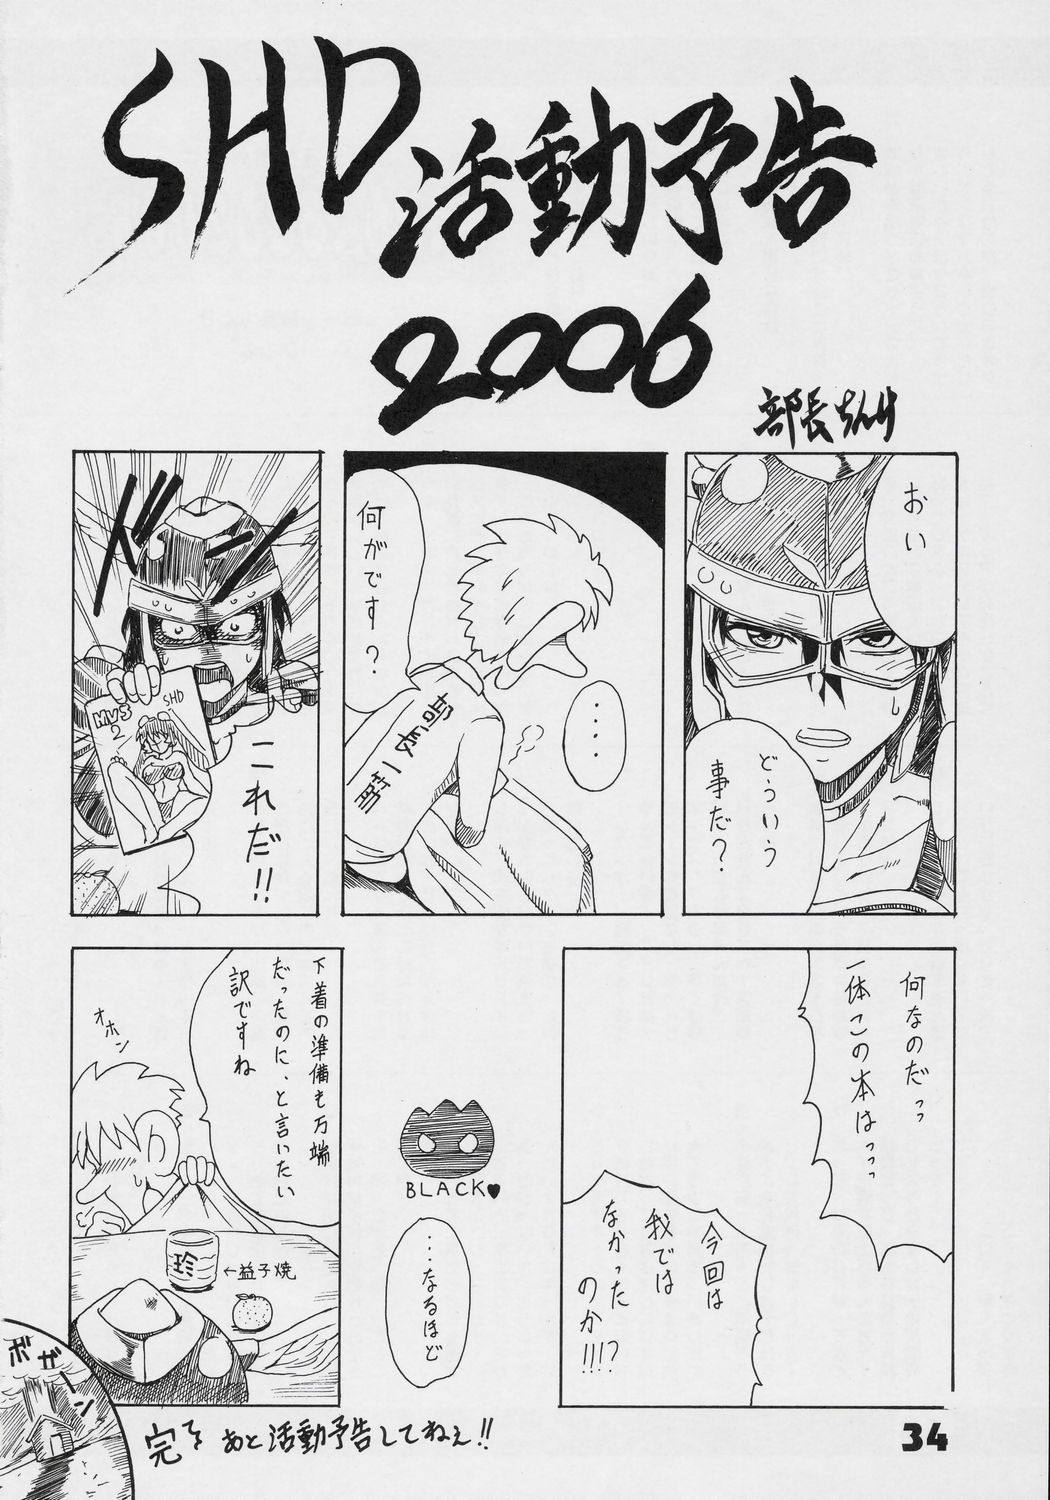 SHD
活動予告
2006
部長ちんけ
おい
どういう
事だ？
・・・・
何がです？
部長一筋
ドドーン
これだ!!
MVS
2
SHD
何なのだっっ
一体この本はっっっ
今回は
我では
なかった
のか!!!?
BLACK♥
・・・なるほど
下着の準備も万端
だったのに、と言いたい
訳ですね
オホン
珍
←益子焼
ボガーン
完
てゆーか あと活動予告してねぇ!!
34